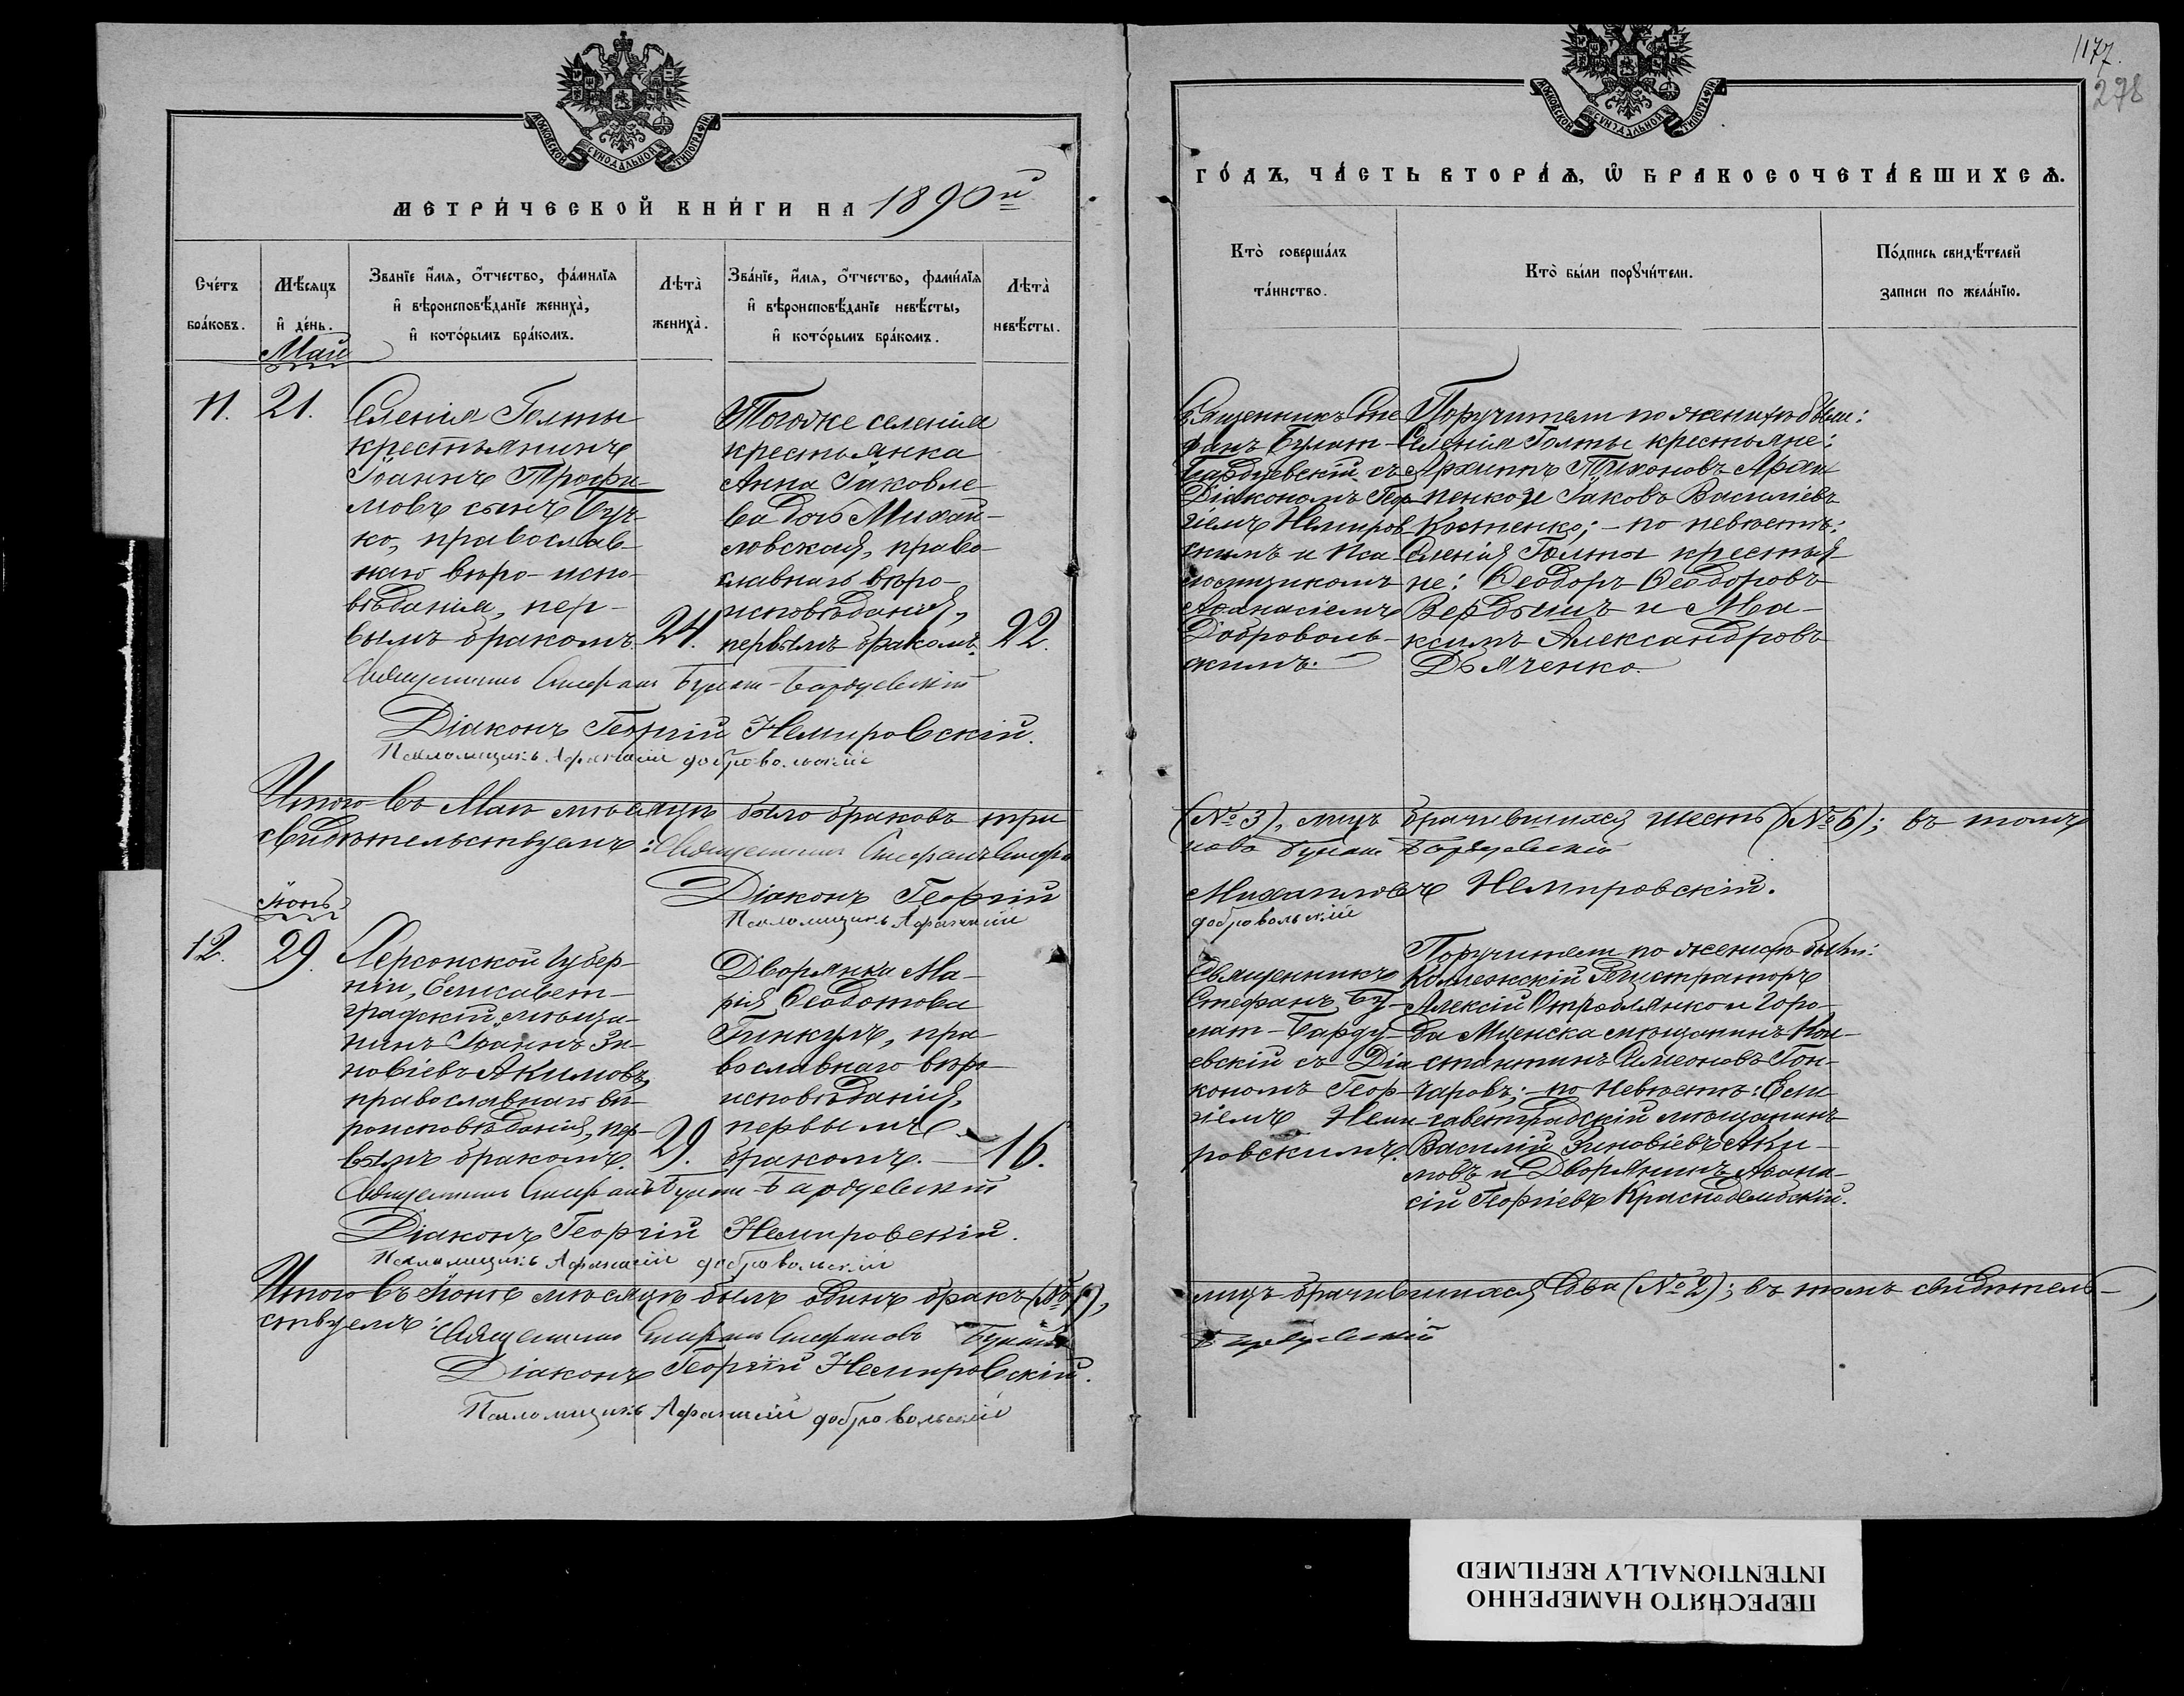 МОСКОВСКОЙ СѴНОДАЛЬНОЙ ТИПОГРАФІИ
МЕТРИ́ЧЕСКОЙ КНИ́ГИ НА 1890й
Сче́тъ бра́ковъ.
Мѣ́сяцъ и҆ де́нь.
Званїе и҆́мя, ѻ҆́тчество, фамилїя
и҆ вѣроисповѣ́данїе жениха̀,
и҆ кото́рымъ бра́комъ.
Лѣта̀ жениха̀.
Зва́нїе, и҆́мя, ѻ҆́тчество, фами́лїя
и҆ вѣроисповѣ́данїе невѣ́сты,
и҆ кото́рымъ бра́комъ.
Лѣта̀ невѣ́сты.
Май
11.
21.
Селенія Голты
крестьянинъ
Іоаннъ Трофи
мовъ сынъ Буч-
ко, православ-
наго вѣро-испо-
вѣданія, пер-
вымъ бракомъ.
24.
Тогоже селенія
крестьянка
Анна Іаковле
ва дочь Михай-
ловская, право-
славнаго вѣро-
исповѣданія,
первымъ бракомъ.
22.
Священникъ Стефанъ Булат-Бардуевскій
Діаконъ Георгій Немировскій.
Псаломщикъ Афанасій Добровольскій
Итого въ Маѣ мѣсяцѣ было браковъ три
свидѣтельствуемъ: Священникъ Стефанъ Стефа
Діаконъ Георгій
Псаломщикъ Афанасій
Іюнь
12.
29.
Херсонской губер-
ніи, Елисавет-
градскій мѣща-
нинъ Іоаннъ Зи-
новіевъ Акимовъ,
православнаго вѣ-
роисповѣданія, пер-
вымъ бракомъ.
29.
Дворянка Ма-
рія Ѳеодотова
Гинкулъ, пра
вославнаго вѣро-
исповѣданія,
первымъ
бракомъ.
16.
Священникъ Стефанъ Булат-Бардуевскій
Діаконъ Георгій Немировскій.
Псаломщикъ Афанасій Добровольскій
Итого въ Іюнѣ мѣсяцѣ былъ одинъ бракъ (№ 1),
ствуемъ: Священникъ Стефанъ Стефановъ Булатъ
Діаконъ Георгій Немировскій.
Псаломщикъ Афанасій Добровольскій
1177.
278
МОСКОВСКОЙ СѴНОДАЛЬНОЙ ТИПОГРАФІИ
ГО́ДЪ, ЧА́СТЬ ВТОРА́Ѧ, Ѡ҆ БРАКОСОЧЕТА́ВШИХСѦ.
Кто̀ соверша́лъ та́инство.
Кто̀ бы́ли порꙋчи́тели.
По́дпись свидѣ́телей записи по жела́нїю.
Священникъ Сте
фанъ Булат-
Бардуевскій съ
Діакономъ Геор
гіемъ Немиров
скимъ и Пса
ломщикомъ
Аѳанасіемъ
Доброволь-
скимъ.
Поручители по женихѣ были:
Селенія Голты крестьяне:
Архиппъ Тихоновъ Архи
пенко и Іаковъ Василіевъ
Костенко; - по невѣстѣ:
Селенія Голты крестья
не: Ѳеодоръ Ѳеодоровъ
Вердышъ и Ма-
ксимъ Александровъ
Дьяченко.
(№ 3), лицъ брачившихся шесть (№ 6); въ томъ
новъ Булат Бардуевскій
Михаиловъ Немировскій.
Добровольскій
Священникъ
Стефанъ Бу-
лат-Барду-
евскій съ Діа
кономъ Геор-
гіемъ Неми
ровскимъ.
Поручители по женихѣ были:
Коллежскій Регистраторъ
Алексій и Горо
да Мценска мѣщанинъ Кон-
стантинъ Симеоновъ Гон-
чаровъ; - по невѣстѣ: Ели
саветградскій мѣщанинъ
Василій Зиновіевъ Аки-
мовъ и Дворянинъ Аѳана-
сій Георгіевъ Краснодембскій.
лицъ брачившихся два (№ 2); въ томъ свидѣтель-
Бардуевскій
ПЕРЕСНЯТО НАМЕРЕННО
INTENTIONALLY REFILMED